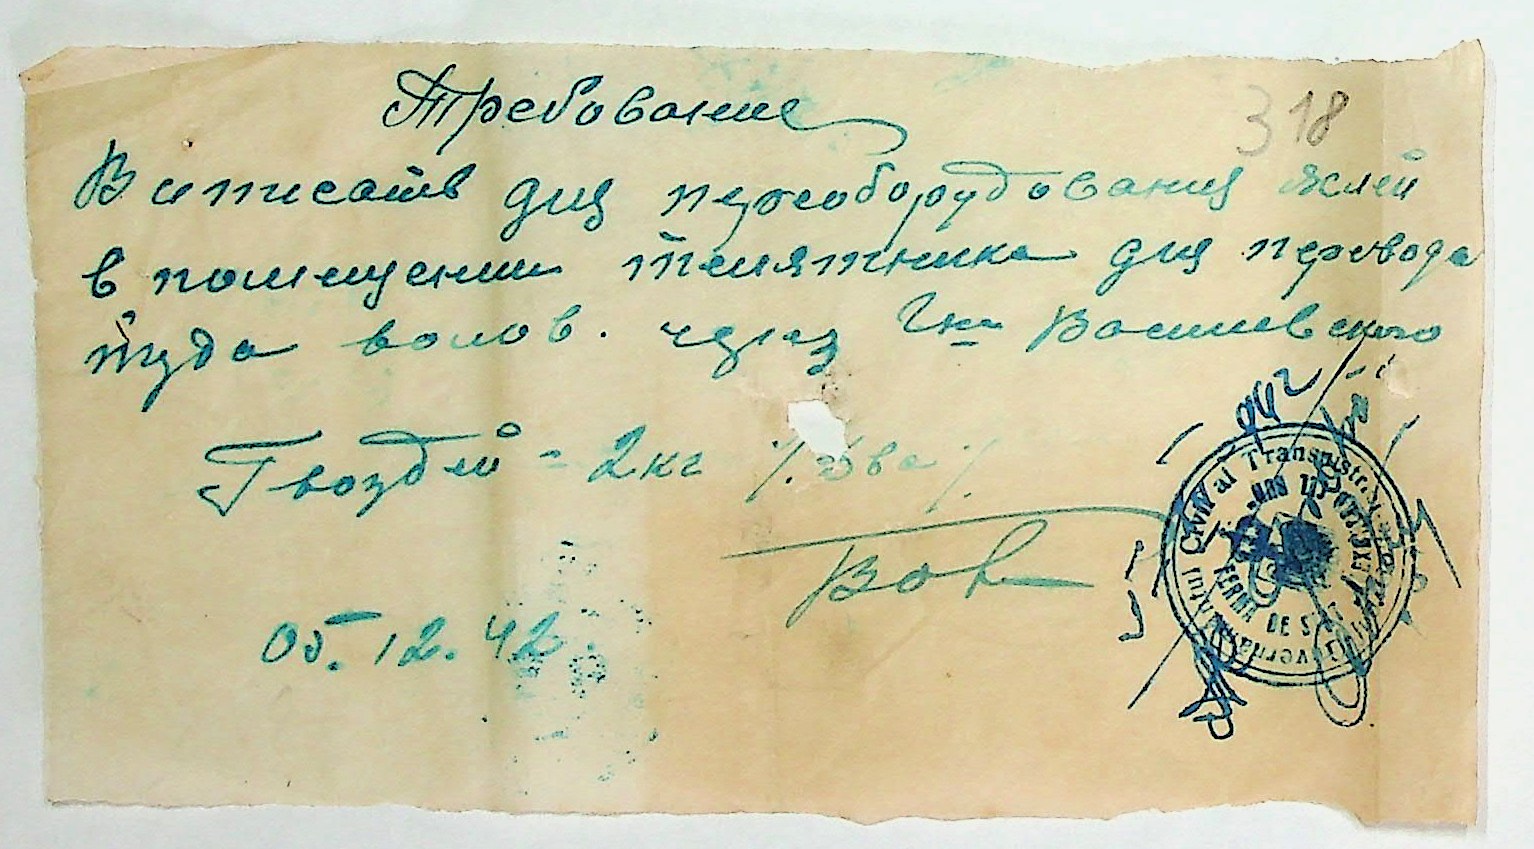 Требование
318
Выписать для переоборудования яслей
в помещении телятника для перевода
туда волов. через Г-на Василевского
Гвоздей = 2 кг /. Два /.
05.12.42
Guvernământul Civil al Transnistriei
FERMA DE